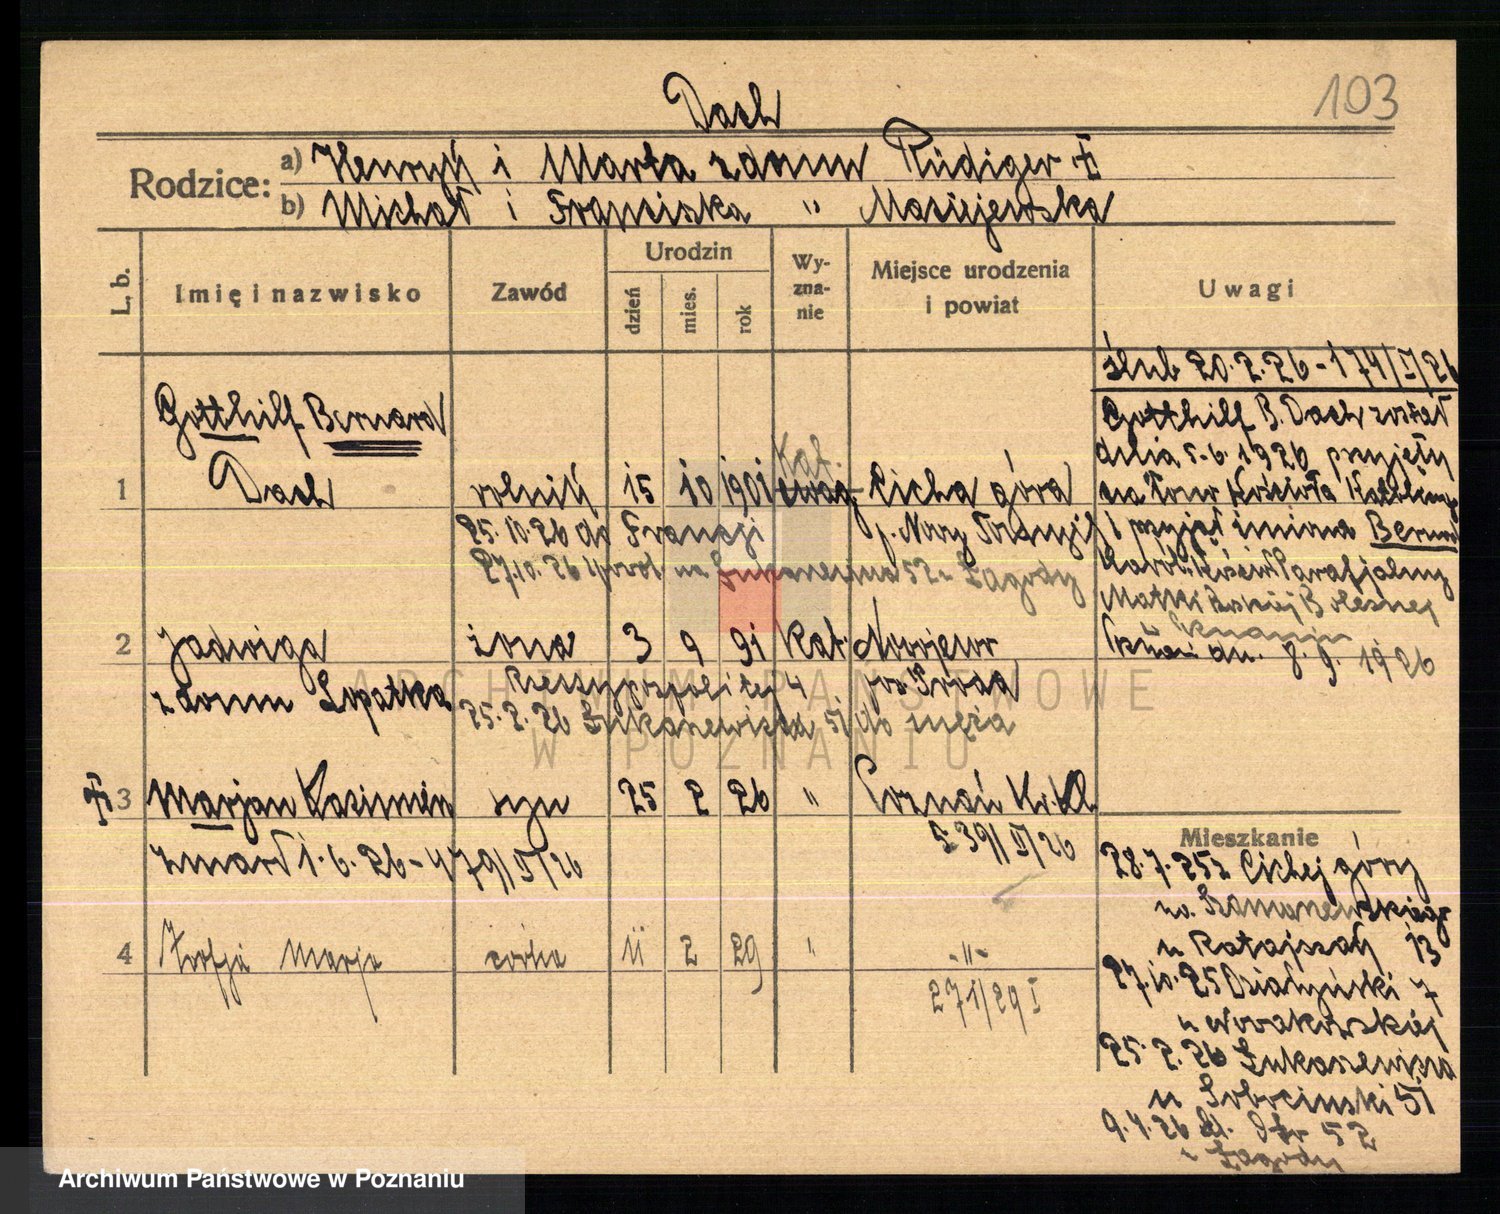 103
Dach
Rodzice:
a) Henryk i Marta z domu Rüdiger
b) Michał i Franciszka " Maciejewska
L. b.
Imię i nazwisko
Zawód
Urodzin
dzień
mies.
rok
Wy-
zna-
nie
Miejsce urodzenia
i powiat
Uwagi
ślub 20.2.26 - 174/II/26
Gotthilf B. Dach został
dnia 5.6.1926 przyjęty
na łono Kościoła
i przyjął imiona
Matki Boskiej Bolesnej
dn. 8. 9. 1926
Gotthilf Bernard
1 Dach rolnik 15 10 1901 ewag. Kat. Cicha góra
p. Nowy Tomyśl
25.10.26 do Francji
27.10.26 na 52
2 Jadwiga żona 3 9 91 Kat.
z domu Łopatka Rzeczypospolitej 4 Środa
25.2.26 51 do męża
3 Marjan Kazimierz syn 25 2 26 " Poznań
539/II/26
zmarł 1.6.26 - 479/II/26
4 Zofja Marja córka 11 2 29 " -"-
271/29 I
Mieszkanie
28.7.25 z Cichej góry
u Ratajczak 13
27.10.25 Działyński 7
u Nowakowskiej
25.2.26
u Sobociński 51
9.4.26 52
ARCHIWUM PAŃSTWOWE
W POZNANIU
Archiwum Państwowe w Poznaniu